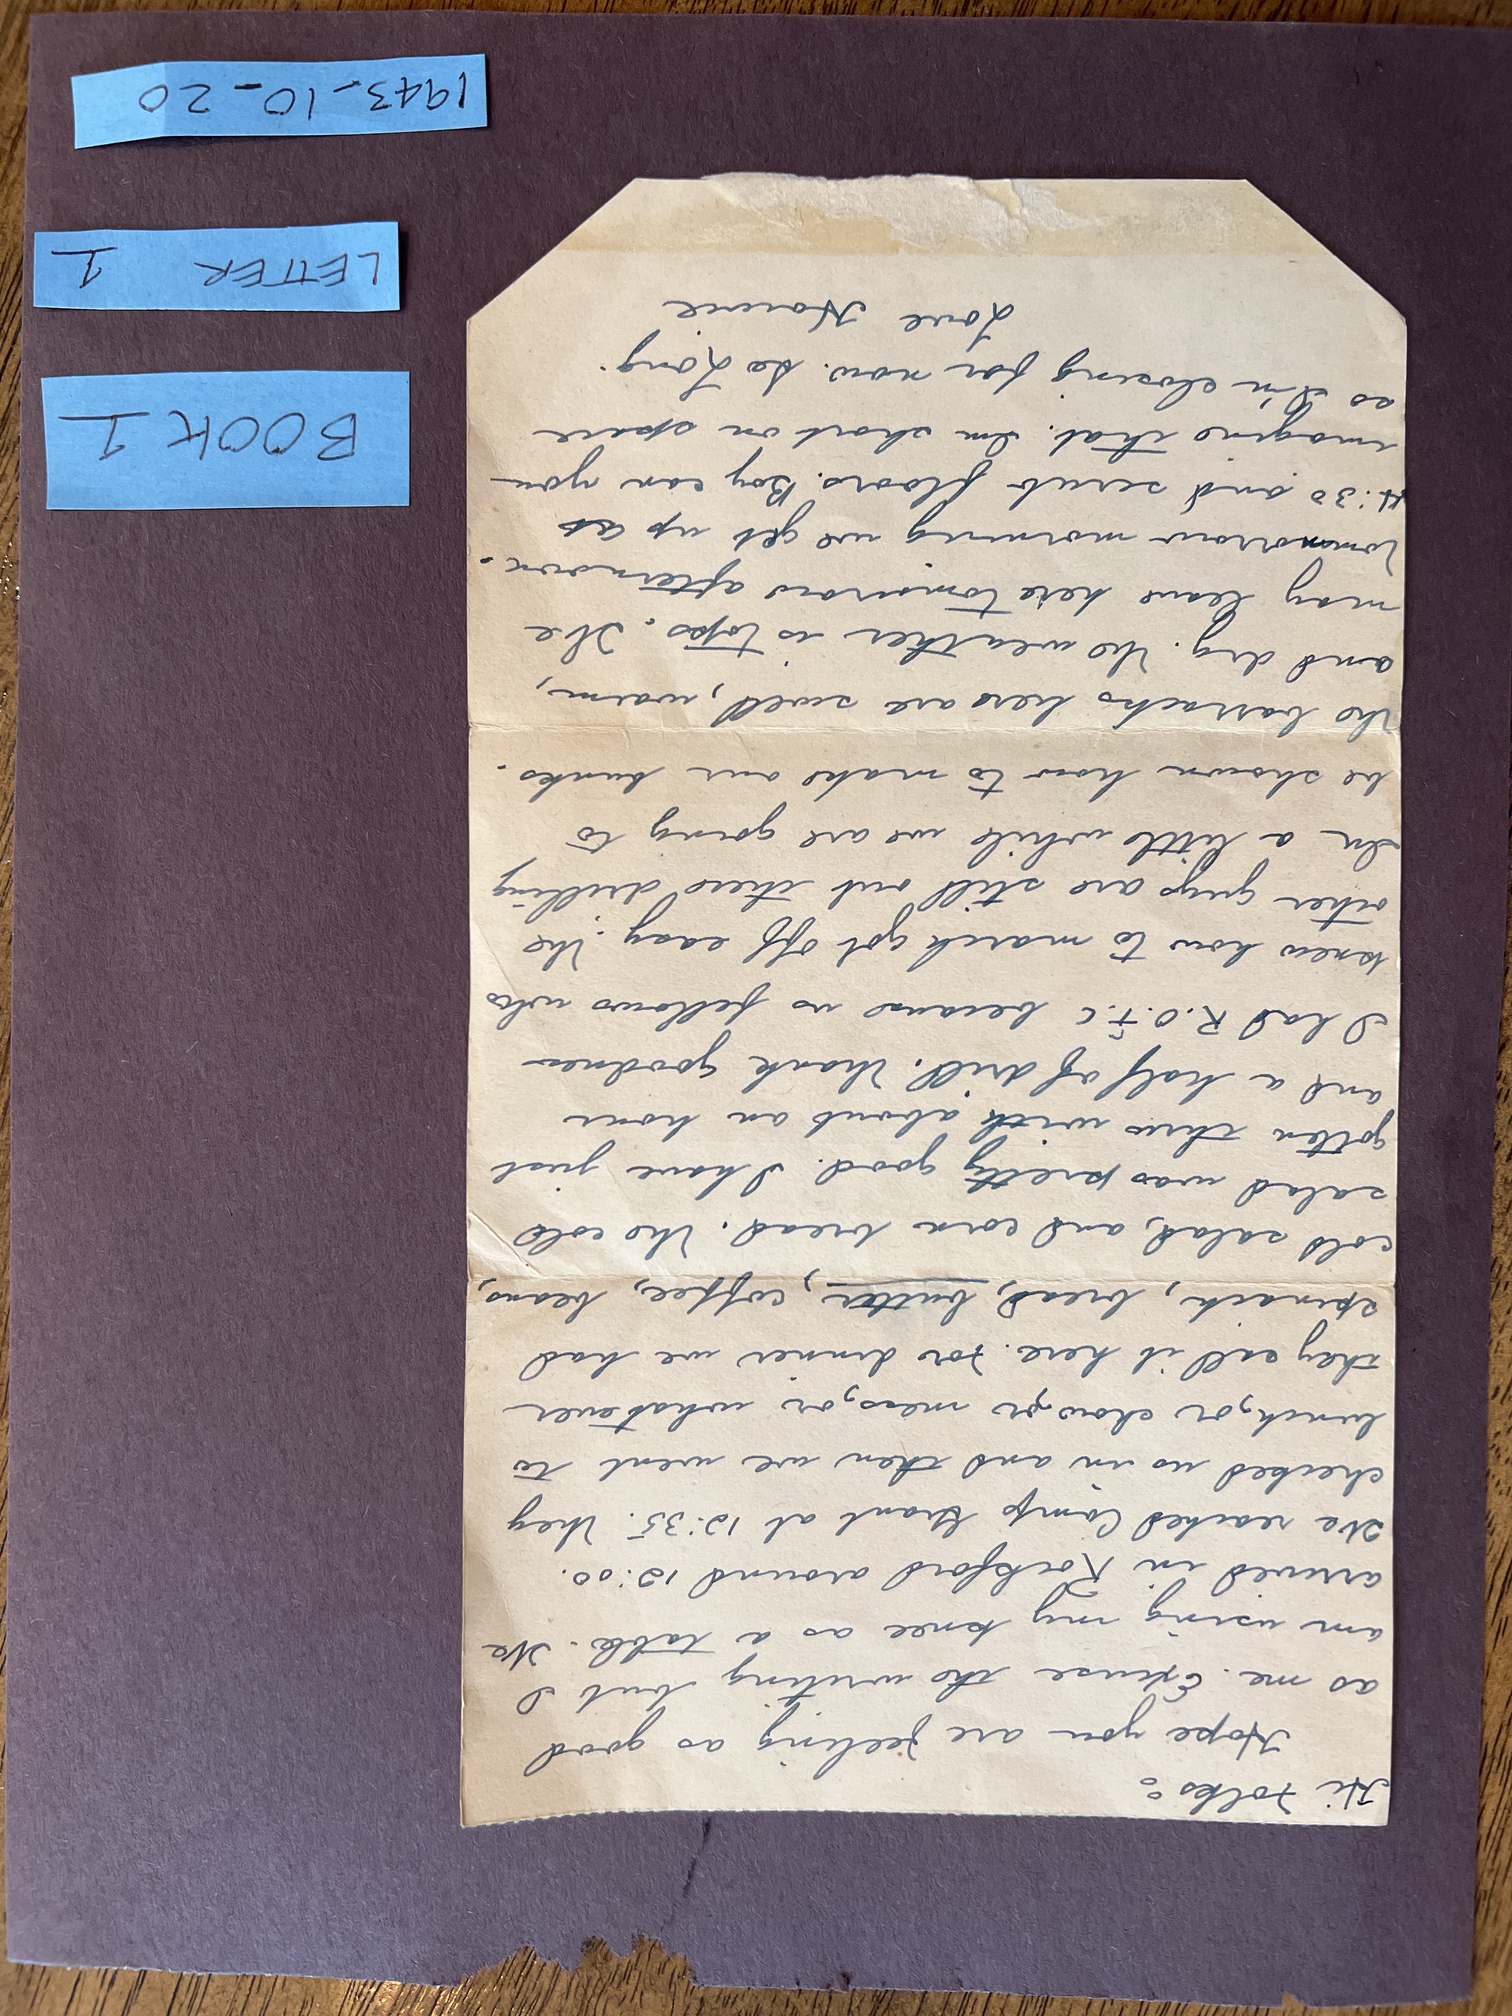 BOOK 1
LETTER 1
1943-10-20
Hi Folks:
Hope you are feeling as good
as me. Excuse the writing but I
am using my knee as a table. We
arrived in Rockford around 12:00.
We reached Camp Grant at 12:35. They
checked us in and then we went to
lunch, or chow, or mess, or whatever
they call it here. For dinner we had
spinach, bread, butter, coffee, beans,
cold salad, and corn bread. The cold
salad was pretty good. I have just
gotten thru with about an hour
and a half of drill. Thank goodness
I had R.O.T.C because us fellows who
knew how to march got off easy. The
other guys are still out there drilling
In a little while we are going to
be shown how to make our bunks.
The barracks here are swell, warm,
and dry. The weather is tops. We
may leave here tomorrow afternoon.
Tommorrow morning we get up at
4:30 and scrub floors. Boy can you
imagine that. Im short on space
so I'm closing for now. So Long.
Love Howie